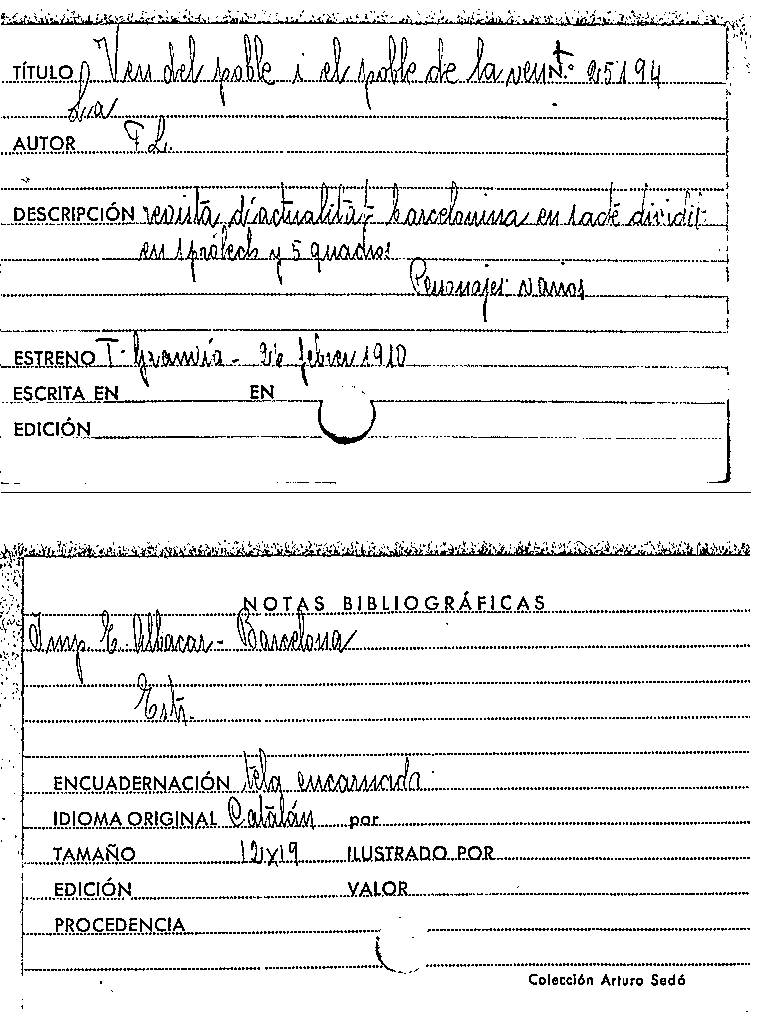 TÍTULO Veu del poble i el poble de la veu N.º 25194
La
AUTOR F L.
DESCRIPCIÓN revista d'actualitat barcelonina en 1 acte dividit
en 1 prólech y 5 quadros
Personajes varios
ESTRENO T. Granvía - 26 febrer 1910
ESCRITA EN EN
EDICIÓN
NOTAS BIBLIOGRÁFICAS
Imp. E. Albacar - Barcelona
Estr.
ENCUADERNACIÓN tela encarnada
IDIOMA ORIGINAL Catalán por
TAMAÑO 12x19 ILUSTRADO POR
EDICIÓN VALOR
PROCEDENCIA
Colección Arturo Sedó